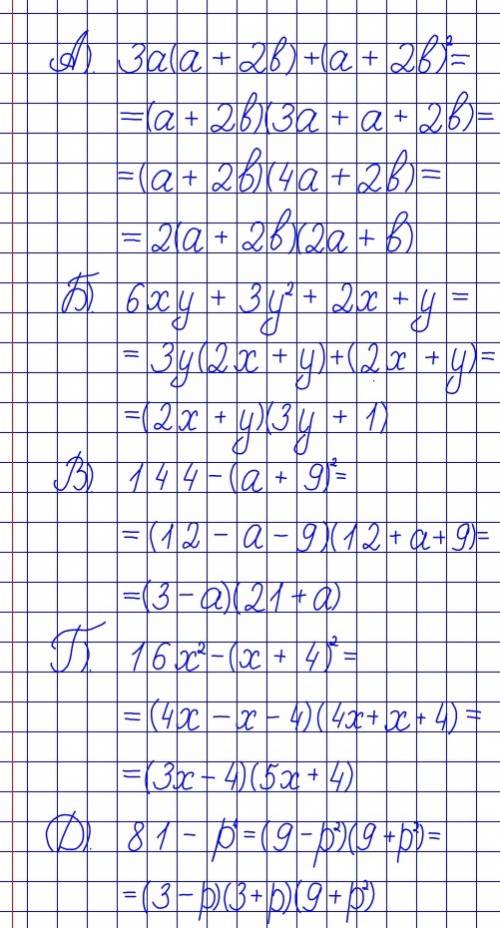 А). 3а(а + 2в) + (а + 2в)² =
= (а + 2в)(3а + а + 2в) =
= (а + 2в)(4а + 2в) =
= 2(а + 2в)(2а + в)
Б). 6xy + 3y² + 2x + y =
= 3y(2x + y) + (2x + y) =
= (2x + y)(3y + 1)
В). 144 - (а + 9)² =
= (12 - а - 9)(12 + а + 9) =
= (3 - а)(21 + а)
Г). 16x² - (x + 4)² =
= (4x - x - 4)(4x + x + 4) =
= (3x - 4)(5x + 4)
Д). 81 - p⁴ = (9 - p²)(9 + p²) =
= (3 - p)(3 + p)(9 + p²)